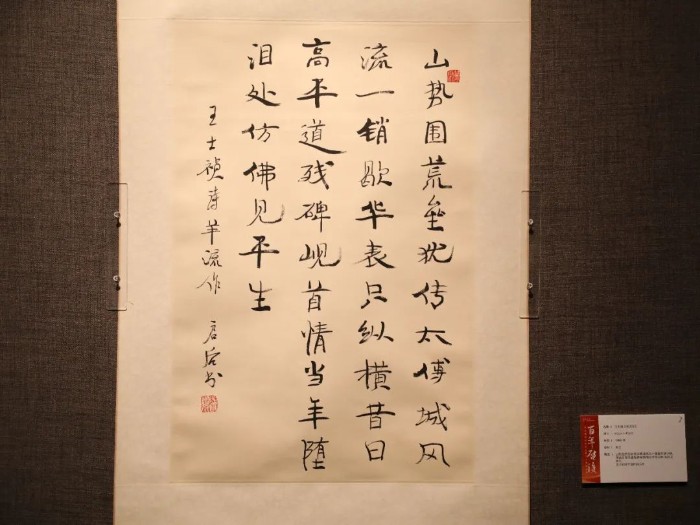 山势围荒垒犹传太傅城风
流一销歇华表只纵横昔日
高平道残碑岘首情当年堕
泪处仿佛见平生
王士祯诗羊流作
百年